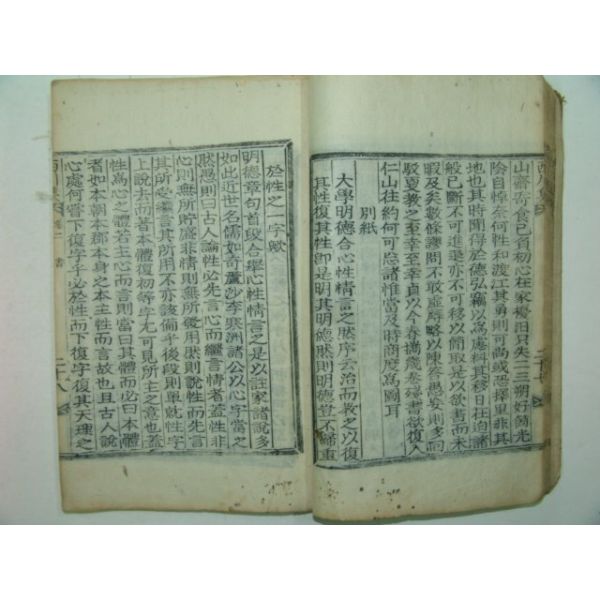 山齋寄食已負初心在家擾汨只失二三朔好箇光
陰自悼奈何性和渡江其勇則可尙或恐擇里非其
地也其時聞得於德弘竊以爲慮料其移日在迫諸
般已斷不可進退亦不可移以簡取是以欲書而未
暇及矣數條謬問不敢虛辱略以陳答愚妄則多而
駁夏敎之至幸至幸貞以今春攜歲卷歸書欲復
仁山往約何可忘諸惟當及時商度爲圖耳
別紙
大學明德合心性情言之然序云治而敎之以復
其性復其性卽是明其明德然則明德豈不歸重
於性之一字歟
明德章句首段合擧心性情言之是以註家諸說多
如此近世名儒如奇蘆沙李寒洲諸公以心字當之
然愚則曰古人論性必先言心而繼言情者蓋性非
心則無所貯盛非情則無所發用然則說性而先言
其所心繼言其所用不亦該偏乎後段則單就性字
上說去而者本體復初等字尤可見所主之意也蓋
性爲心之體若主心而言則當曰其體而必曰本體
者如本朝本郡本身之本主性而言故也且古人說
心處何嘗下復字乎必於性而下復字復其天理之
書
二十八